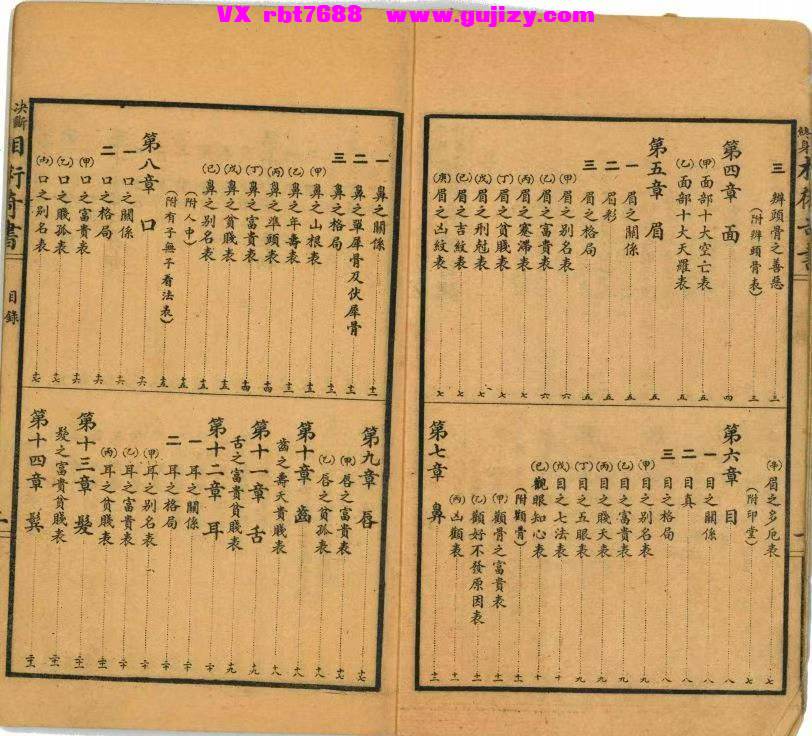 VX rbt7688 www.gujizy.com
三 辨頭骨之善惡 三
(附辨頭骨表) 三
第四章 面 四
(甲)面部十大空亡表 五
(乙)面部十大天羅表 五
第五章 眉 五
一 眉之關係 五
二 眉彩 五
三 眉之格局 五
(甲)眉之別名表 六
(乙)眉之富貴表 六
(丙)眉之寒滯表 七
(丁)眉之貧賤表 七
(戊)眉之刑尅表 七
(己)眉之吉紋表 七
(庚)眉之凶紋表 七
(辛)眉之多厄表 七
(附印堂) 七
第六章 目 八
一 目之關係 八
二 目真 八
三 目之格局 八
(甲)目之別名表 九
(乙)目之富貴表 九
(丙)目之賤夭表 九
(丁)目之五眼表 九
(戊)目之七法表 十
(己)觀眼知心表 十
(附顴骨) 十一
(甲)顴骨之富貴表 十一
(乙)顴好不發原因表 十一
(丙)凶顴表 十一
第七章 鼻 十二
一 鼻之關係 十二
二 鼻之單犀骨及伏犀骨 十三
三 鼻之格局 十三
(甲)鼻之山根表 十三
(乙)鼻之年壽表 十三
(丙)鼻之準頭表 十四
(丁)鼻之富貴表 十四
(戊)鼻之貧賤表 十五
(己)鼻之別名表 十五
(附人中) 十五
(附有子無子看法表) 十五
第八章 口 十六
一 口之關係 十六
二 口之格局 十六
(甲)口之富貴表 十六
(乙)口之賤孤表 十七
(丙)口之別名表 十七
決斷
相術奇書
目錄
第九章 唇 十七
(甲)唇之富貴表 十七
(乙)唇之貧孤表 十八
第十章 齒 十八
齒之壽夭貴賤表 十八
第十一章 舌 十九
舌之富貴貧賤表 十九
第十二章 耳 二十
一 耳之關係 二十
二 耳之格局 二十
(甲)耳之別名表 二十
(乙)耳之富貴表 二十
(丙)耳之貧賤表 二十一
第十三章 髮 二十一
髮之富貴貧賤表 二十一
第十四章 鬓 二十二